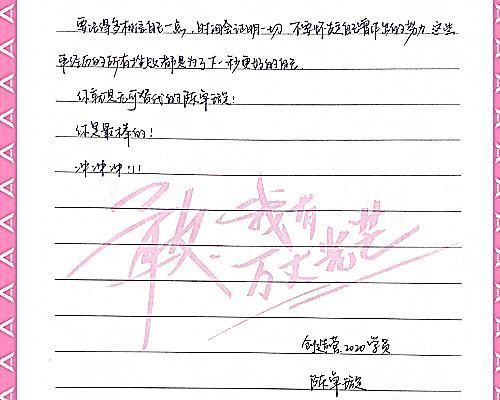 要记得多相信自己一点,时间会证明一切 不要怀疑自己曾作出的努力 这些
年经历的所有挫败都是为了下一秒更好的自己.
你就是无可替代的陈卓璇!
你是最棒的!
冲冲冲!!!
敢 我有
万丈光芒
创造营2020学员
陈卓璇